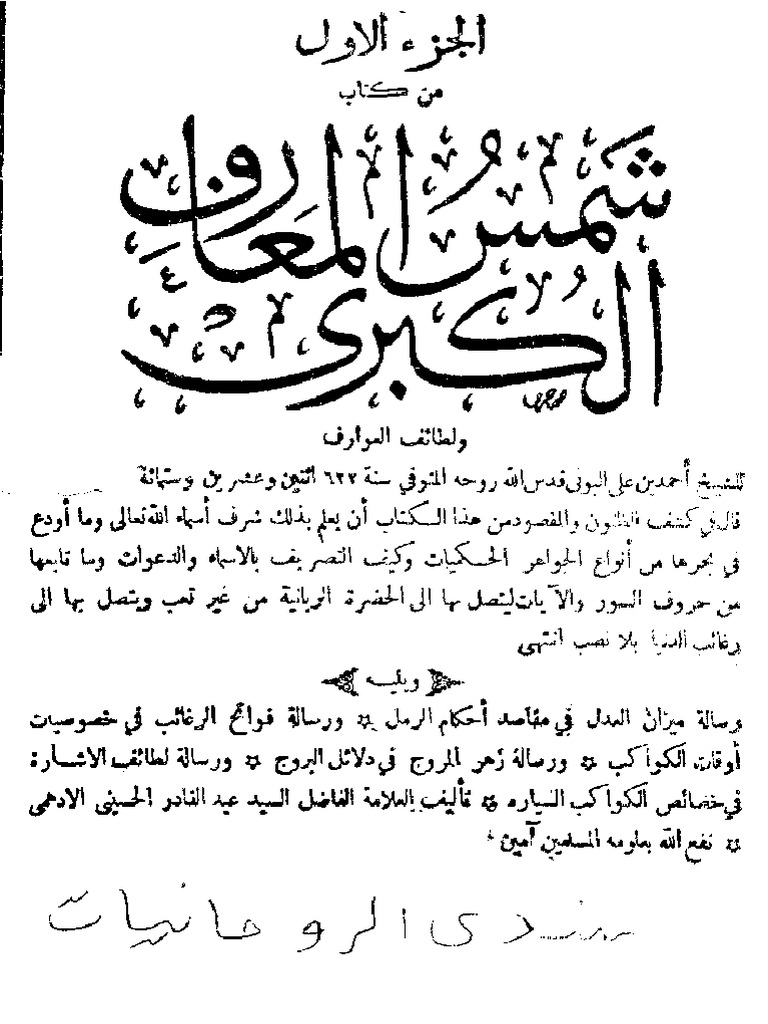 الجزء الاول
من كتاب
شمس المعارف
الكبرى
ولطائف العوارف
للشيخ أحمد بن علي البونى قدس الله روحه المتوفي سنة ٦٢٢ اثنين وعشرين وستمائة
قال في كشف الظنون والمقصود من هذا الكتاب أن يعلم بذلك شرف أسماء الله تعالى وما أودع
في بحرها من أنواع الجواهر الحكميات وكيف التصريف بالاسماء والدعوات وما تابعها
من حروف السور والآيات ليتصل بها الى الحضرة الربانية من غير تعب ويتصل بها الى
رغائب الدنيا بلا نصب انتهى
ويليه
رسالة ميزان العدل في مقاصد أحكام الرمل ورسالة فواتح الرغائب في خصوصيات
أوقات الكواكب ورسالة زهر المروج في دلائل البروج ورسالة لطائف الاشارة
في خصائص الكواكب السياره تأليف العلامة الفاضل السيد عبد القادر الحسينى الادهمى
نفع الله بعلومه المسلمين آمين
منتدى الروحانيات